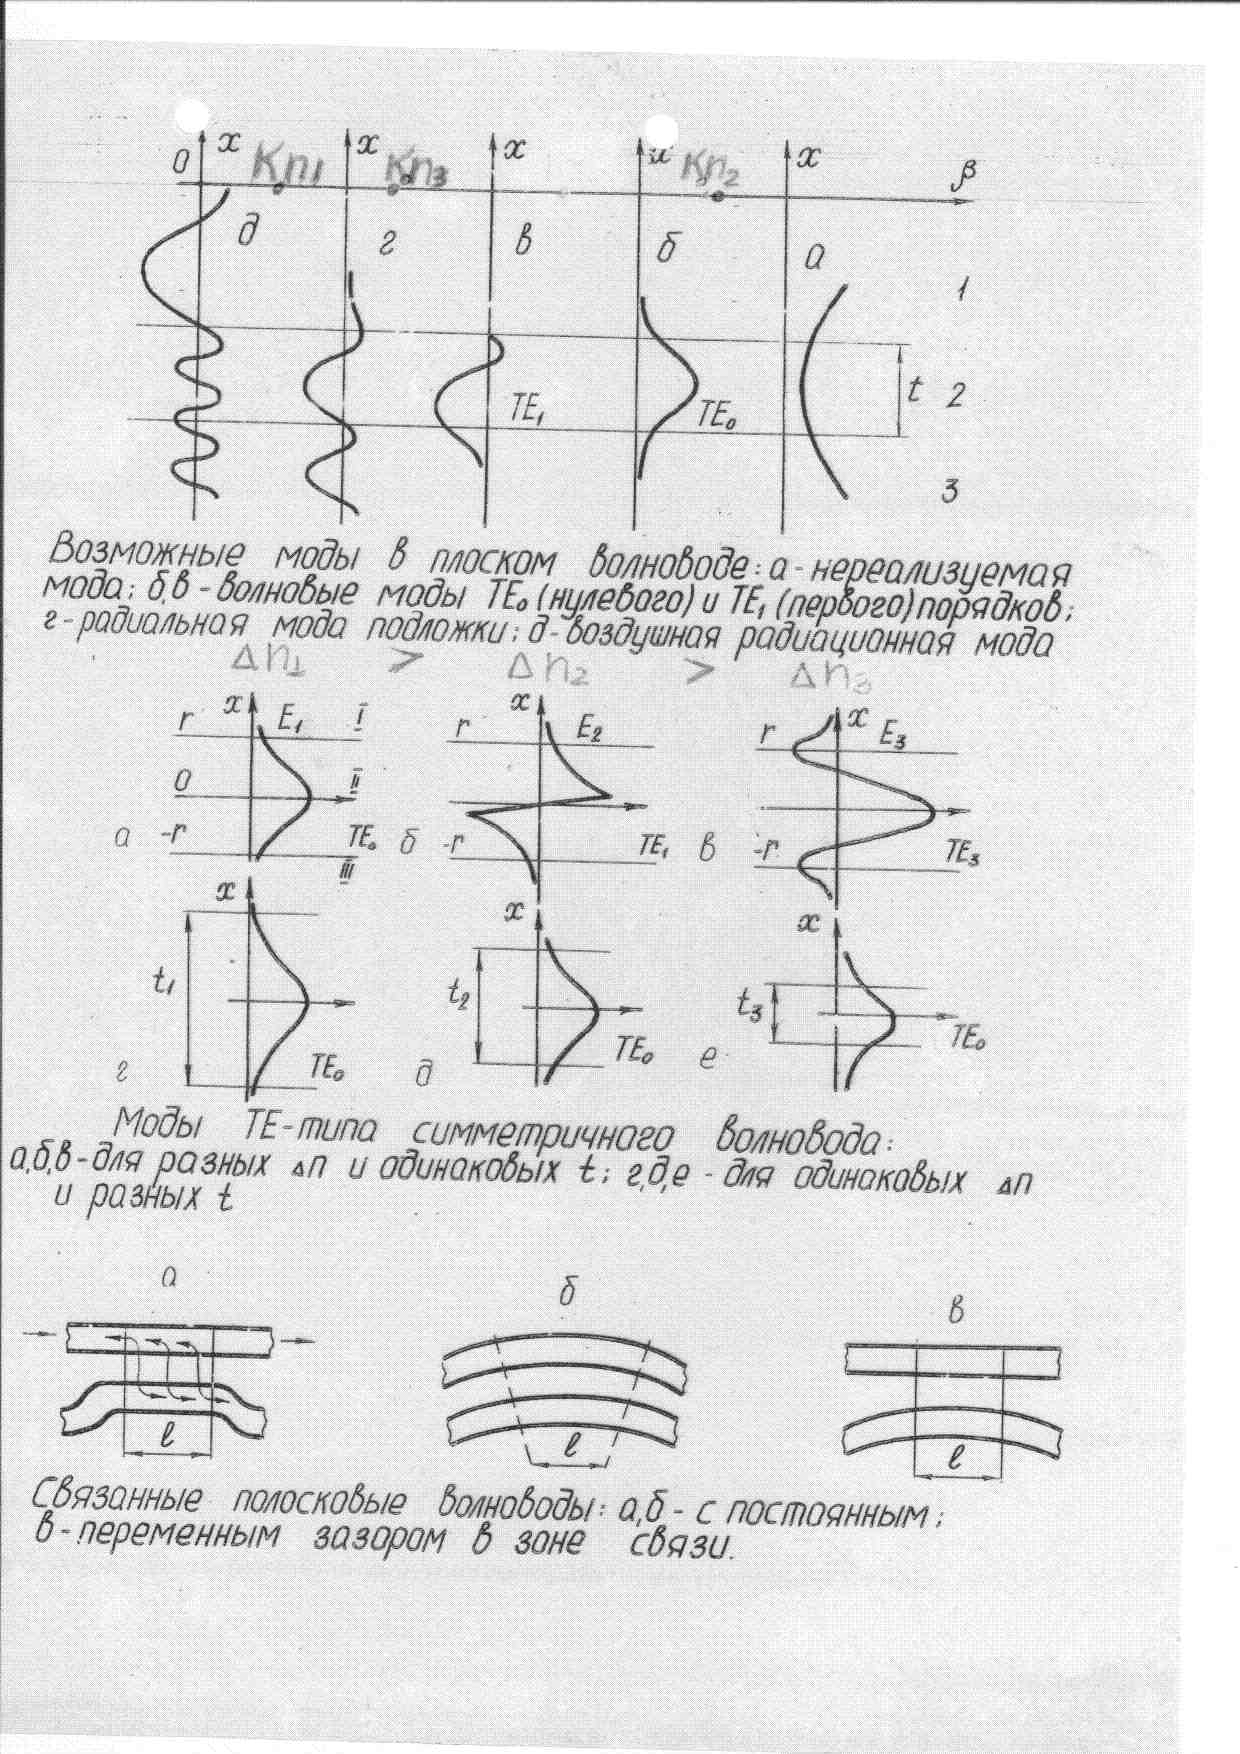 0 x Kn1 x Kn3 x x Kn2 x β
д г в б а
1
TE1 TE0 t 2
3
Возможные моды в плоском волноводе: а - нереализуемая
мода; б,в - волновые моды TE0 (нулевого) и TE1 (первого) порядков;
г - радиальная мода подложки; д - воздушная радиационная мода
Δn1 > Δn2 > Δn3
r x E1 I r x E2 r x E3
0 II
а -r TE0 б -r TE1 в -r TE3
III
x x x
t1 t2 t3
г TE0 д TE0 е TE0
Моды TE-типа симметричного волновода:
а,б,в - для разных Δn и одинаковых t; г,д,е - для одинаковых Δn
и разных t
а б в
ℓ ℓ ℓ
Связанные полосковые волноводы: а,б - с постоянным;
в - переменным зазором в зоне связи.